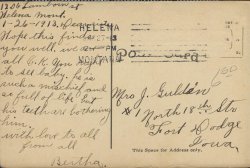 1206 Landon st
Helena Mont.
1-26-1913.
Hope this finds
you well. we are
all O.K. You ought
to see baby. he is
such a mischief and
so full of life but
his teeth are bothering
him.
with love to all
from all
Bertha.
HELENA
MONTANA
Post Card
Mrs J. Guldin
North 18th St
Fort Dodge
Iowa.
This Space for Address only.